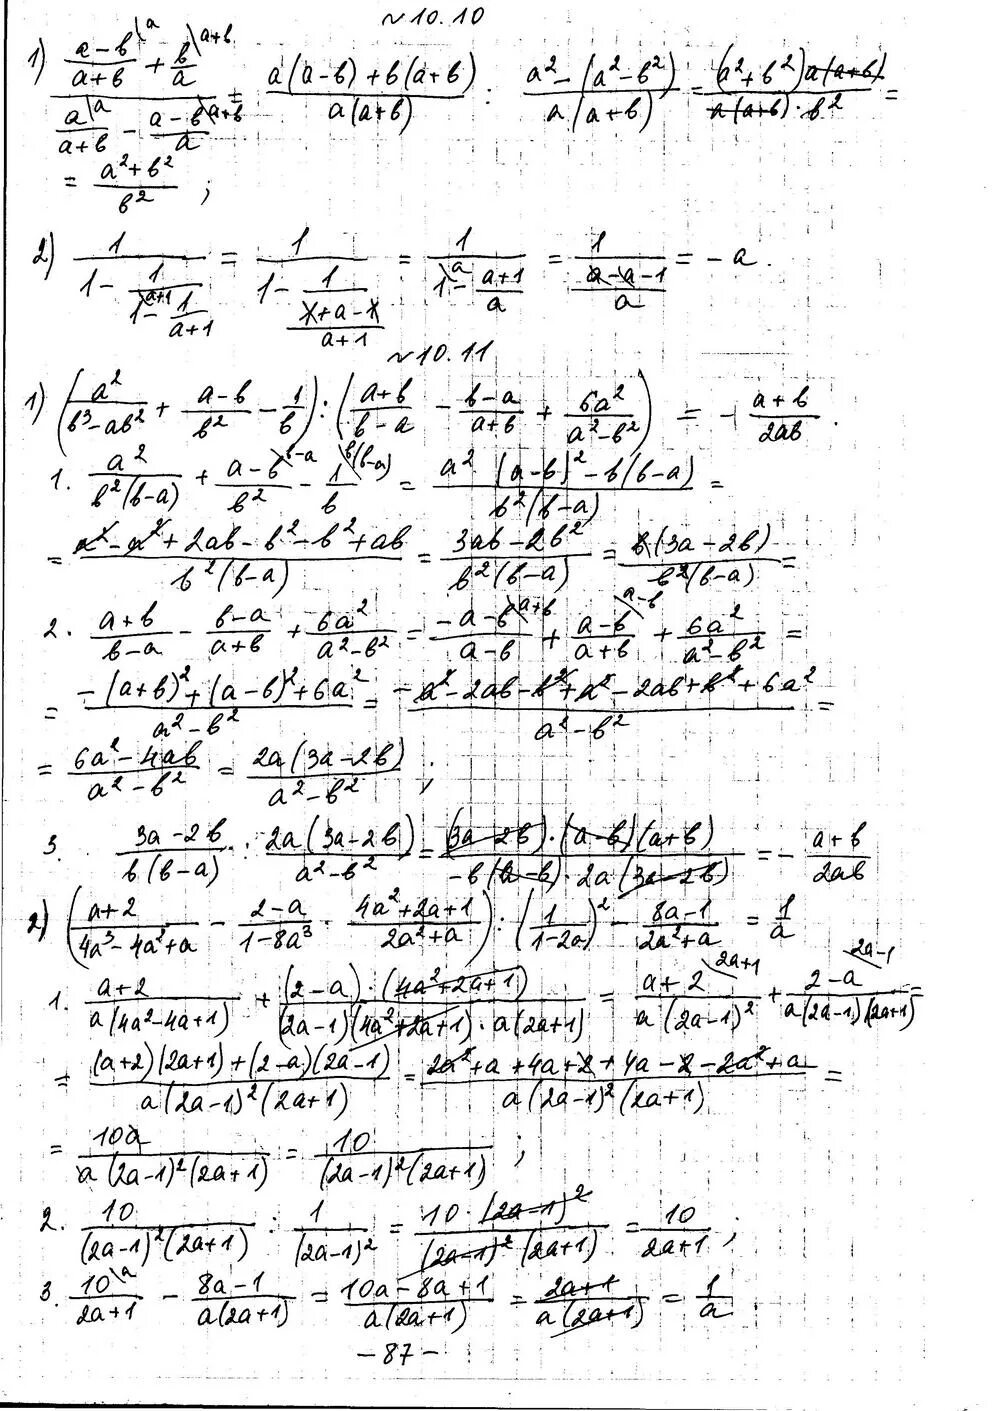 №10.10
1) ((a-в)/(a+в) \a + в/a \a+в) / (a/(a+в) \a - (a-в)/a \a+в) = (a(a-в)+в(a+в))/(a(a+в)) : (a²-(a²-в²))/(a(a+в)) = ((a²+в²)a(a+в))/(a(a+в)·в²) =
= (a²+в²)/в² ;
2) 1/(1-1/(1\a+1 - 1/(a+1))) = 1/(1-1/((1+a-1)/(a+1))) = 1/(1\a - (a+1)/a) = 1/((a-a-1)/a) = -a.
№10.11
1) (a²/(в³-aв²) + (a-в)/в² - 1/в) : ((a+в)/(в-a) - (в-a)/(a+в) + 6a²/(a²-в²)) = -(a+в)/(2aв).
1. a²/(в²(в-a)) + (a-в)/в² \в-a - 1/в \в(в-a) = (a² (a-в)²-в(в-a))/(в²(в-a)) =
= (a²-a²+2aв-в²-в²+aв)/(в²(в-a)) = (3aв-2в²)/(в²(в-a)) = (в(3a-2в))/(в²(в-a)) =
2. (a+в)/(в-a) - (в-a)/(a+в) + 6a²/(a²-в²) = (-a-в)/(a-в) \a+в + (a-в)/(a+в) \a-в + 6a²/(a²-в²) =
= (-(a+в)²+(a-в)²+6a²)/(a²-в²) = (-a²-2aв-в²+a²-2aв+в²+6a²)/(a²-в²) =
= (6a²-4aв)/(a²-в²) = (2a(3a-2в))/(a²-в²) ;
3. (3a-2в)/(в(в-a)) : (2a(3a-2в))/(a²-в²) = ((3a-2в)·(a-в)(a+в))/(-в(a-в)·2a(3a-2в)) = -(a+в)/(2aв)
2) ((a+2)/(4a³-4a²+a) - (2-a)/(1-8a³) · (4a²+2a+1)/(2a²+a)) : (1/(1-2a))² - (8a-1)/(2a²+a) = 1/a
1. (a+2)/(a(4a²-4a+1)) + ((2-a)·(4a²+2a+1))/((2a-1)(4a²+2a+1)·a(2a+1)) = (a+2)/(a(2a-1)²) \2a+1 + (2-a)/(a(2a-1)(2a+1)) \2a-1 =
= ((a+2)(2a+1)+(2-a)(2a-1))/(a(2a-1)²(2a+1)) = (2a²+a+4a+2+4a-2-2a²+a)/(a(2a-1)²(2a+1)) =
= 10a/(a(2a-1)²(2a+1)) = 10/((2a-1)²(2a+1)) ;
2. 10/((2a-1)²(2a+1)) : 1/(2a-1)² = (10·(2a-1)²)/((2a-1)²(2a+1)) = 10/(2a+1) ;
3. 10/(2a+1) \a - (8a-1)/(a(2a+1)) = (10a-8a+1)/(a(2a+1)) = (2a+1)/(a(2a+1)) = 1/a
-87-